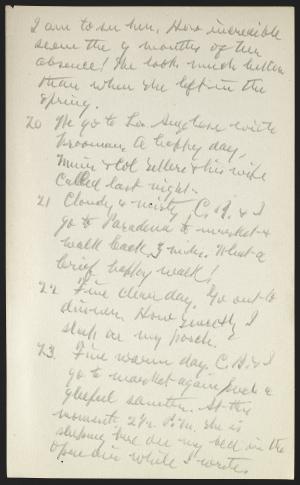 I am to see her. How incredible
seem the 9 months of her
absence! She looks much better
than when she left in the
Spring.
20 We go to Los Angeles with
Vrooman. A happy day.
Muir & Col Sellers & his wife
called last night.
21 Cloudy & misty, C. B. & I
go to Pasadena to market &
walk back, 3 miles. What a
brief happy walk!
22 Fine clear day. Go out to
dinner. How sweetly I
sleep on my porch.
23 Fine warm day. C. B. & I
go to market again, such a
gleeful saunter. At this
moment 2 1/2 P.M. she is
sleeping here on my bed in the
open air while I write.